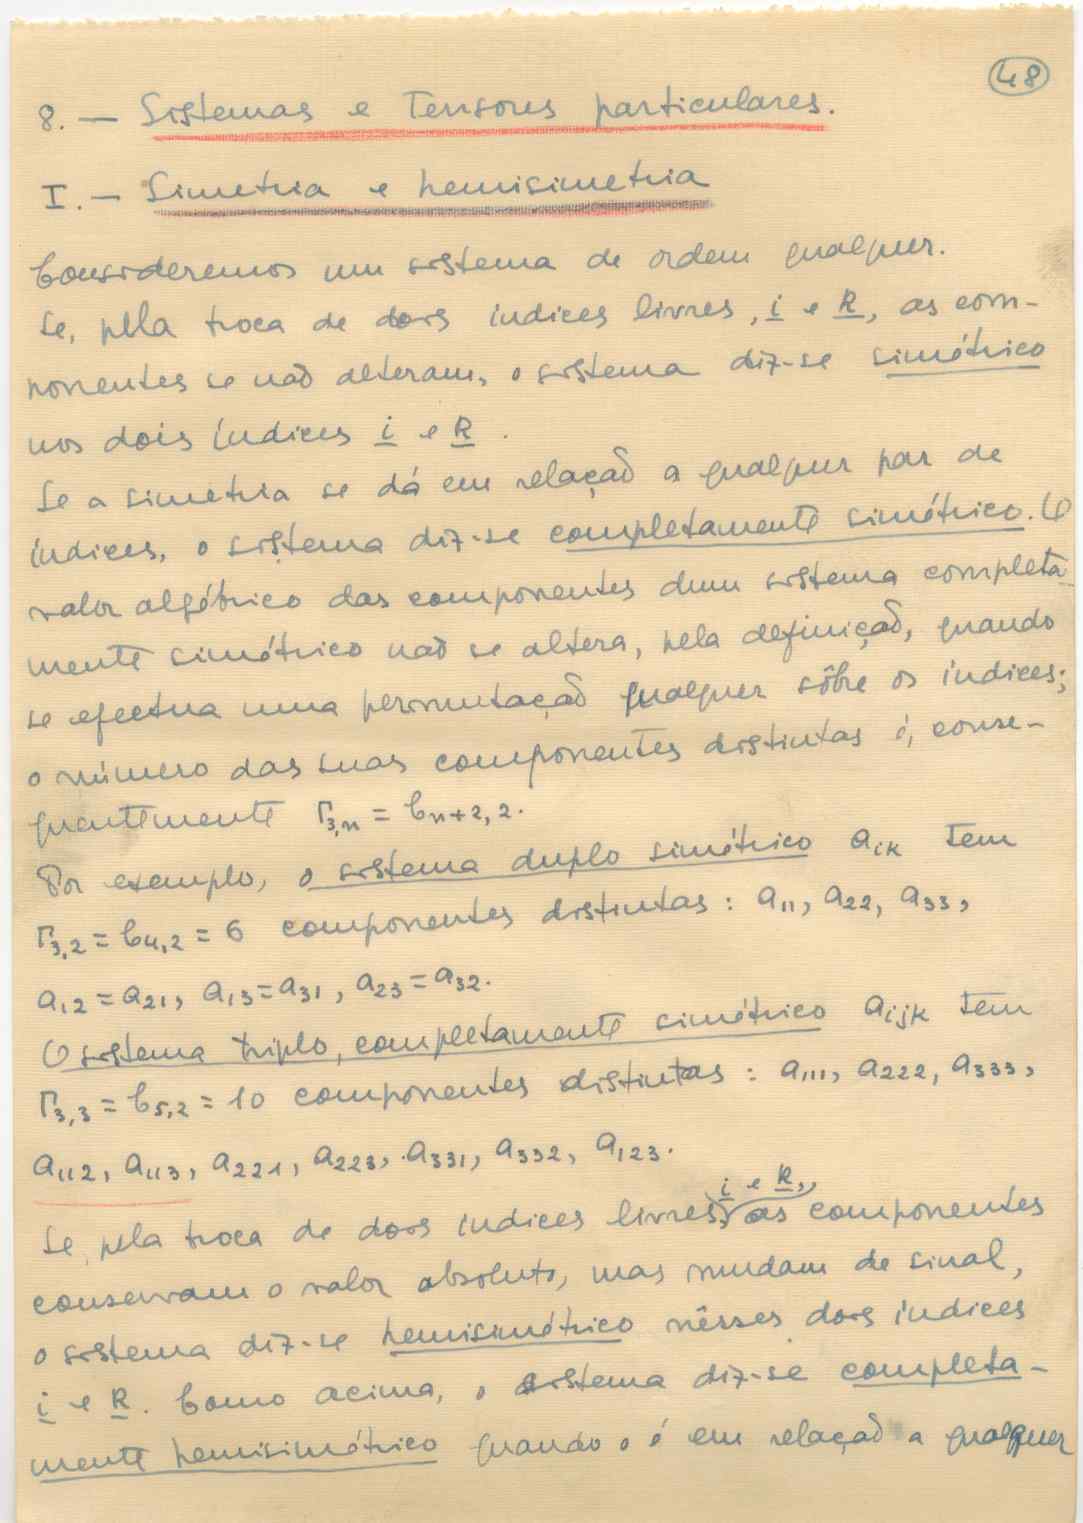 48
8. — Sistemas e Tensores particulares.
I. — Simetria e hemisimetria
Consideremos um sistema de ordem qualquer.
Se, pela troca de dois indices livres, i e k, as com-
ponentes se não alteram, o sistema diz-se simétrico
nos dois índices i e k.
Se a simetria se dá em relação a qualquer par de
índices, o sistema diz-se completamente simétrico. O
valor algébrico das componentes dum sistema completa-
mente simétrico não se altera, pela definição, quando
se efectua uma permutação qualquer sôbre os índices;
o número das suas componentes distintas é, conse-
quentemente Γ3,n = Cn+2, 2.
Por exemplo, o sistema duplo simétrico aik tem
Γ3,2 = C4,2 = 6 componentes distintas: a11, a22, a33,
a12 = a21, a13 = a31, a23 = a32.
O sistema triplo, completamente simétrico aijk tem
Γ3,3 = C5,2 = 10 componentes distintas: a111, a222, a333,
a112, a113, a221, a223, a331, a332, a123.
i e k,
Se, pela troca de dois indices livres, as componentes
conservam o valor absoluto, mas mudam de sinal,
o sistema diz-se hemisimétrico nêsses dois índices
i e k. Como acima, o sistema diz-se completa-
mente hemisimétrico quando o é em relação a qualquer